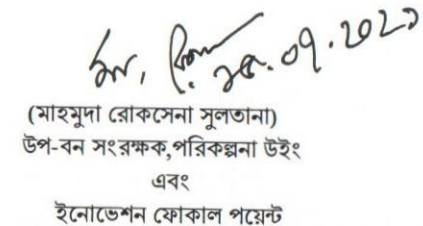 (মাহমুদা রোকসেনা সুলতানা)
উপ-বন সংরক্ষক,পরিকল্পনা উইং
এবং
ইনোভেশন ফোকাল পয়েন্ট